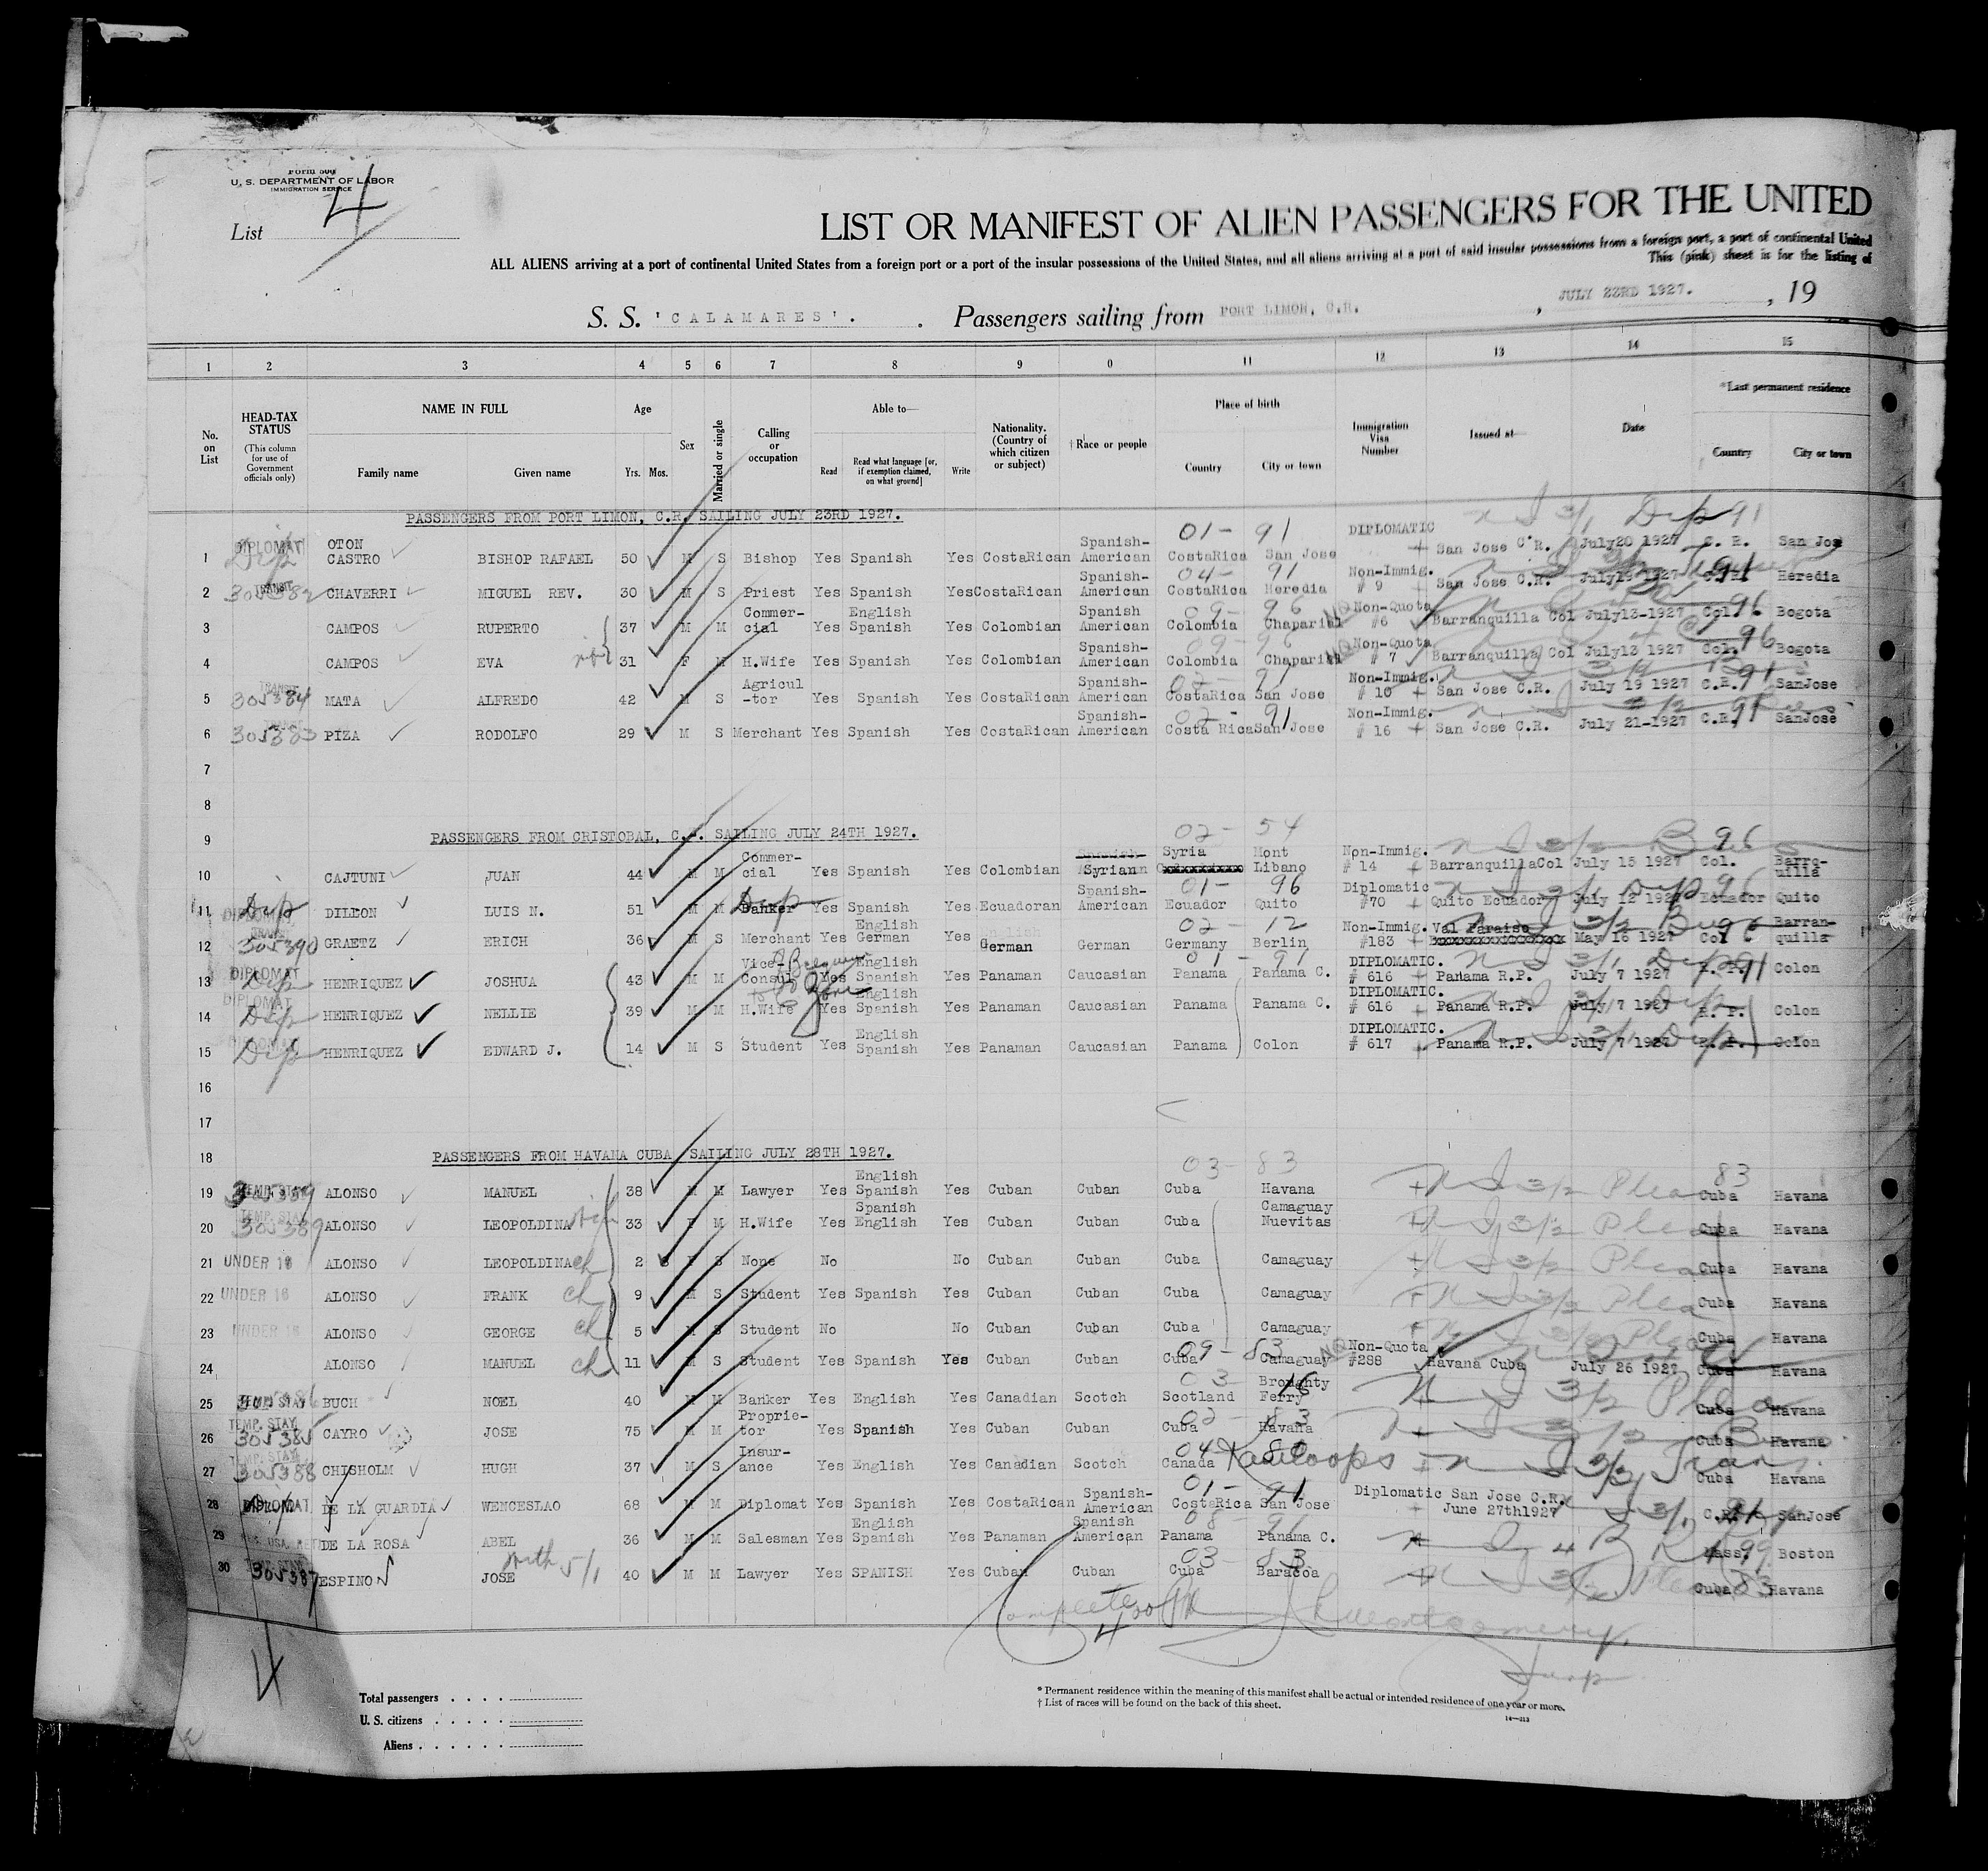 Form 500
U. S. DEPARTMENT OF LABOR
IMMIGRATION SERVICE
List 4
LIST OR MANIFEST OF ALIEN PASSENGERS FOR THE UNITED
ALL ALIENS arriving at a port of continental United States from a foreign port or a port of the insular possessions of the United States, and all aliens arriving at a port of said insular possessions from a foreign port, a port of continental United
This (pink) sheet is for the listing of
S. S. 'CALAMARES'. Passengers sailing from PORT LIMON, C.R. , JULY 23RD 1927. , 19
1 2 3 4 5 6 7 8 9 0 11 12 13 14 15
No. on List
HEAD-TAX STATUS
(This column for use of Government officials only)
NAME IN FULL
Family name Given name
Age
Yrs. Mos.
Sex
Married or single
Calling or occupation
Able to—
Read Read what language [or, if exemption claimed, on what ground] Write
Nationality. (Country of which citizen or subject)
† Race or people
Place of birth
Country City or town
Immigration Visa Number
Issued at
Date
*Last permanent residence
Country City or town
PASSENGERS FROM PORT LIMON, C.R. SAILING JULY 23RD 1927.
1 DIPLOMAT OTON CASTRO BISHOP RAFAEL 50 M S Bishop Yes Spanish Yes CostaRican Spanish-American CostaRica San Jose 01- 91 DIPLOMATIC San Jose C.R. July20 1927 C. R. San Jose
2 TRANSIT 305382 CHAVERRI MIGUEL REV. 30 M S Priest Yes Spanish Yes CostaRican Spanish-American CostaRica Heredia 04- 91 Non-Immig. # 9 San Jose C.R. July19 1927 C.R. Heredia
3 CAMPOS RUPERTO 37 M M Commer-cial Yes English Spanish Yes Colombian Spanish American Colombia Chaparial 09- 96 Non-Quota #6 Barranquilla Col July13-1927 Col. 96 Bogota
4 CAMPOS EVA wife 31 F M H.Wife Yes Spanish Yes Colombian Spanish-American Colombia Chaparial 09-96 Non-Quota # 7 Barranquilla Col July13 1927 Col. 96 Bogota
5 TRANSIT 305384 MATA ALFREDO 42 M S Agricul-tor Yes Spanish Yes CostaRican Spanish-American CostaRica San Jose 02- 91 Non-Immig. # 10 San Jose C.R. July 19 1927 C.R. 91 SanJose
6 TRANSIT 305383 PIZA RODOLFO 29 M S Merchant Yes Spanish Yes CostaRican Spanish-American Costa Rica San Jose 02- 91 Non-Immig. # 16 San Jose C.R. July 21-1927 C.R. 91 SanJose
7
8
9 PASSENGERS FROM CRISTOBAL, C.Z. SAILING JULY 24TH 1927.
10 CAJTUNI JUAN 44 M M Commer-cial Yes Spanish Yes Colombian Syrian Syria Mont Libano 02- 54 Non-Immig. # 14 BarranquillaCol July 15 1927 Col. 96 Barro-uilla
11 Dip DIPLOMAT DILLON LUIS N. 51 M M Banker Dip Yes Spanish Yes Ecuadoran Spanish-American Ecuador Quito 01- 96 Diplomatic #70 Quito Ecuador July 12 1927 Ecuador Quito
12 TRANSIT 305390 GRAETZ ERICH 36 M S Merchant Yes English German Yes German German Germany Berlin 02- 12 Non-Immig. #183 Val Paraiso May 16 1927 Col 96 Barran-quilla
13 DIPLOMAT Dip HENRIQUEZ JOSHUA 43 M M Vice-Consul Yes English Spanish Yes Panaman Caucasian Panama Panama C. 01- 91 DIPLOMATIC. # 616 Panama R.P. July 7 1927 R. P. 91 Colon
14 DIPLOMAT Dip HENRIQUEZ NELLIE 39 M M H.Wife Yes English Spanish Yes Panaman Caucasian Panama Panama C. DIPLOMATIC. # 616 Panama R.P. July 7 1927 R. P. Colon
15 DIPLOMAT Dip HENRIQUEZ EDWARD J. 14 M S Student Yes English Spanish Yes Panaman Caucasian Panama Colon DIPLOMATIC. # 617 Panama R.P. July 7 1927 R. P. Colon
16
17
18 PASSENGERS FROM HAVANA CUBA SAILING JULY 28TH 1927.
19 TEMP. STAY 305389 ALONSO MANUEL 38 M M Lawyer Yes English Spanish Yes Cuban Cuban Cuba Havana 03- 83 Cuba 83 Havana
20 TEMP. STAY 305389 ALONSO LEOPOLDINA wife 33 F M H.Wife Yes Spanish English Yes Cuban Cuban Cuba Camaguay Nuevitas Cuba Havana
21 UNDER 16 ALONSO LEOPOLDINA ch 2 F S None No No Cuban Cuban Cuba Camaguay Cuba Havana
22 UNDER 16 ALONSO FRANK ch 9 M S Student Yes Spanish Yes Cuban Cuban Cuba Camaguay Cuba Havana
23 UNDER 16 ALONSO GEORGE ch 5 M S Student No No Cuban Cuban Cuba Camaguay Cuba Havana
24 ALONSO MANUEL ch 11 M S Student Yes Spanish Yes Cuban Cuban Cuba Camaguay 09- 83 Non-Quota #288 Havana Cuba July 26 1927 Cuba Havana
25 TEMP. STAY BUCH NOEL 40 M M Banker Yes English Yes Canadian Scotch Scotland Broughty Ferry 03- 15 Cuba Havana
26 TEMP. STAY 305385 CAYRO JOSE 75 M M Proprie-tor Yes Spanish Yes Cuban Cuban Cuba Havana 02- 83 Cuba Havana
27 TEMP. STAY 305388 CHISHOLM HUGH 37 M S Insur-ance Yes English Yes Canadian Scotch Canada Kamloops 04 Cuba Havana
28 DIPLOMAT DE LA GUARDIA WENCESLAO 68 M M Diplomat Yes Spanish Yes CostaRican Spanish-American CostaRica San Jose 01- 91 Diplomatic San Jose C.R. June 27th1927 C.R. SanJose
29 DE LA ROSA ABEL 36 M M Salesman Yes English Spanish Yes Panaman Spanish American Panama Panama C. 08- 91 Mass. Boston
30 TEMP. STAY 305387 ESPINO JOSE 40 M M Lawyer Yes SPANISH Yes Cuban Cuban Cuba Baracoa 03- 83 Cuba 83 Havana
4
Total passengers
U. S. citizens
Aliens
* Permanent residence within the meaning of this manifest shall be actual or intended residence of one year or more.
† List of races will be found on the back of this sheet.
14—213